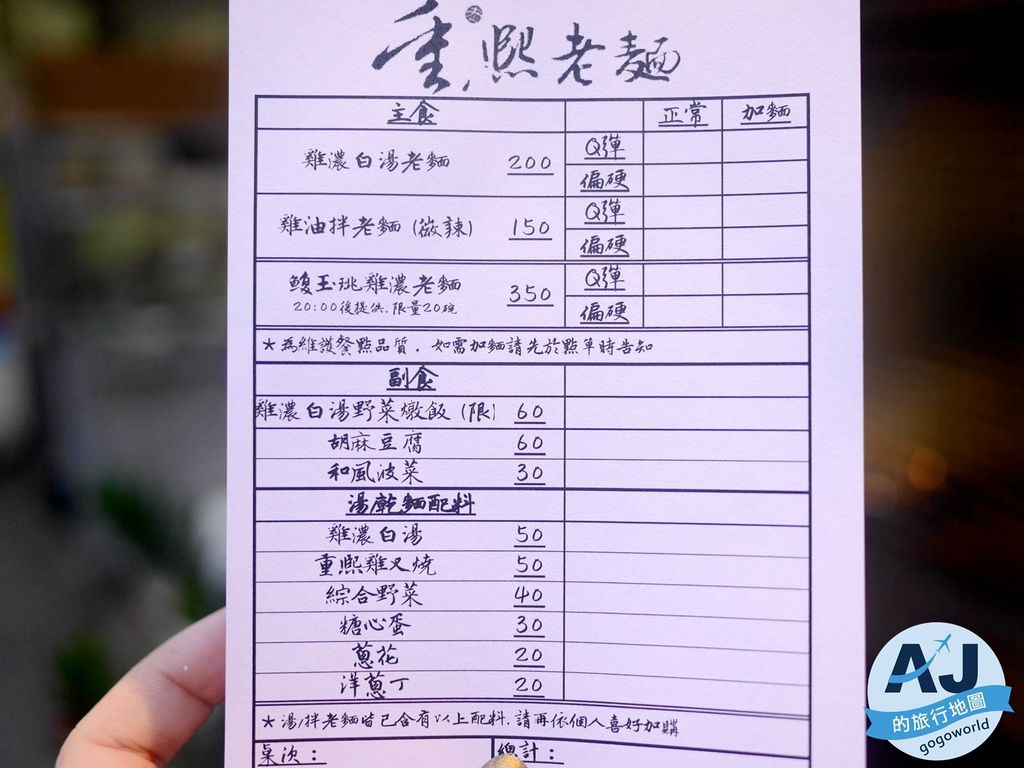 重熙老麵
主食 正常 加麵
雞濃白湯老麵 200 Q彈
偏硬
雞油拌老麵(微辣) 150 Q彈
偏硬
鰒玉珧雞濃老麵 350 Q彈
20:00後提供.限量20碗 偏硬
*為維護餐點品質，如需加麵請先於點單時告知
副食
雞濃白湯野菜燉飯(限) 60
胡麻豆腐 60
和風波菜 30
湯乾麵配料
雞濃白湯 50
重熙雞叉燒 50
綜合野菜 40
糖心蛋 30
蔥花 20
洋蔥丁 20
*湯/拌老麵皆已含有以上配料.請再依個人喜好加購
桌次: 總計:
AJ
的旅行地圖
gogoworld